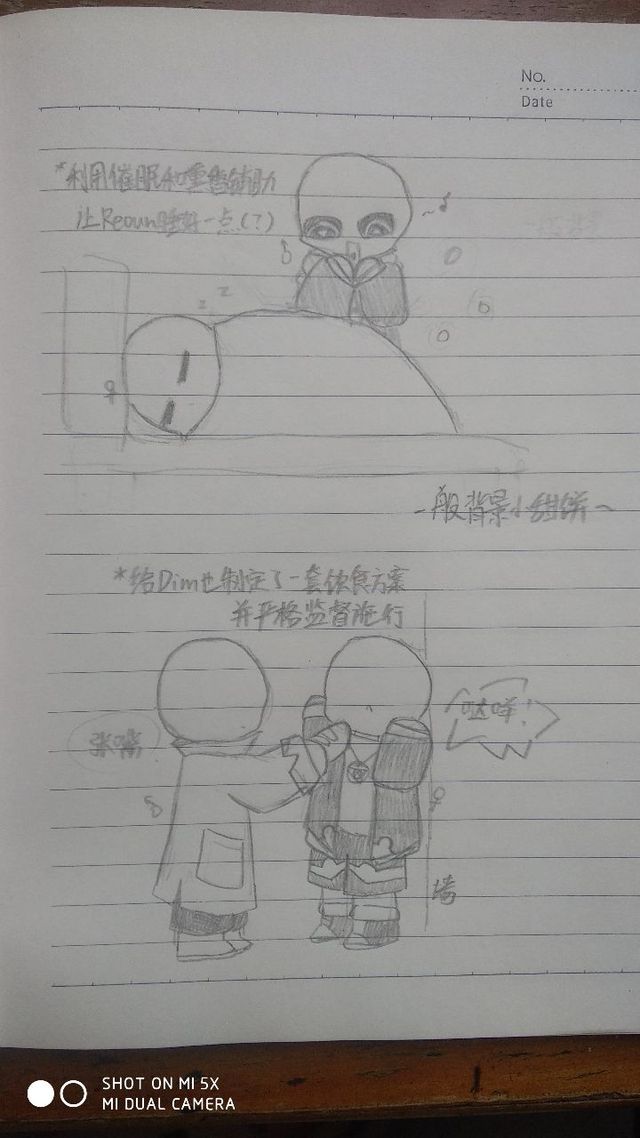 No.
Date
*利用催眠和重香辅助
让Reoun睡好一点(?)
z z
一般背景小甜饼~
*给Dim也制定了一套饮食方案
并严格监督施行
张嘴
哒咩!
墙
SHOT ON MI 5X
MI DUAL CAMERA